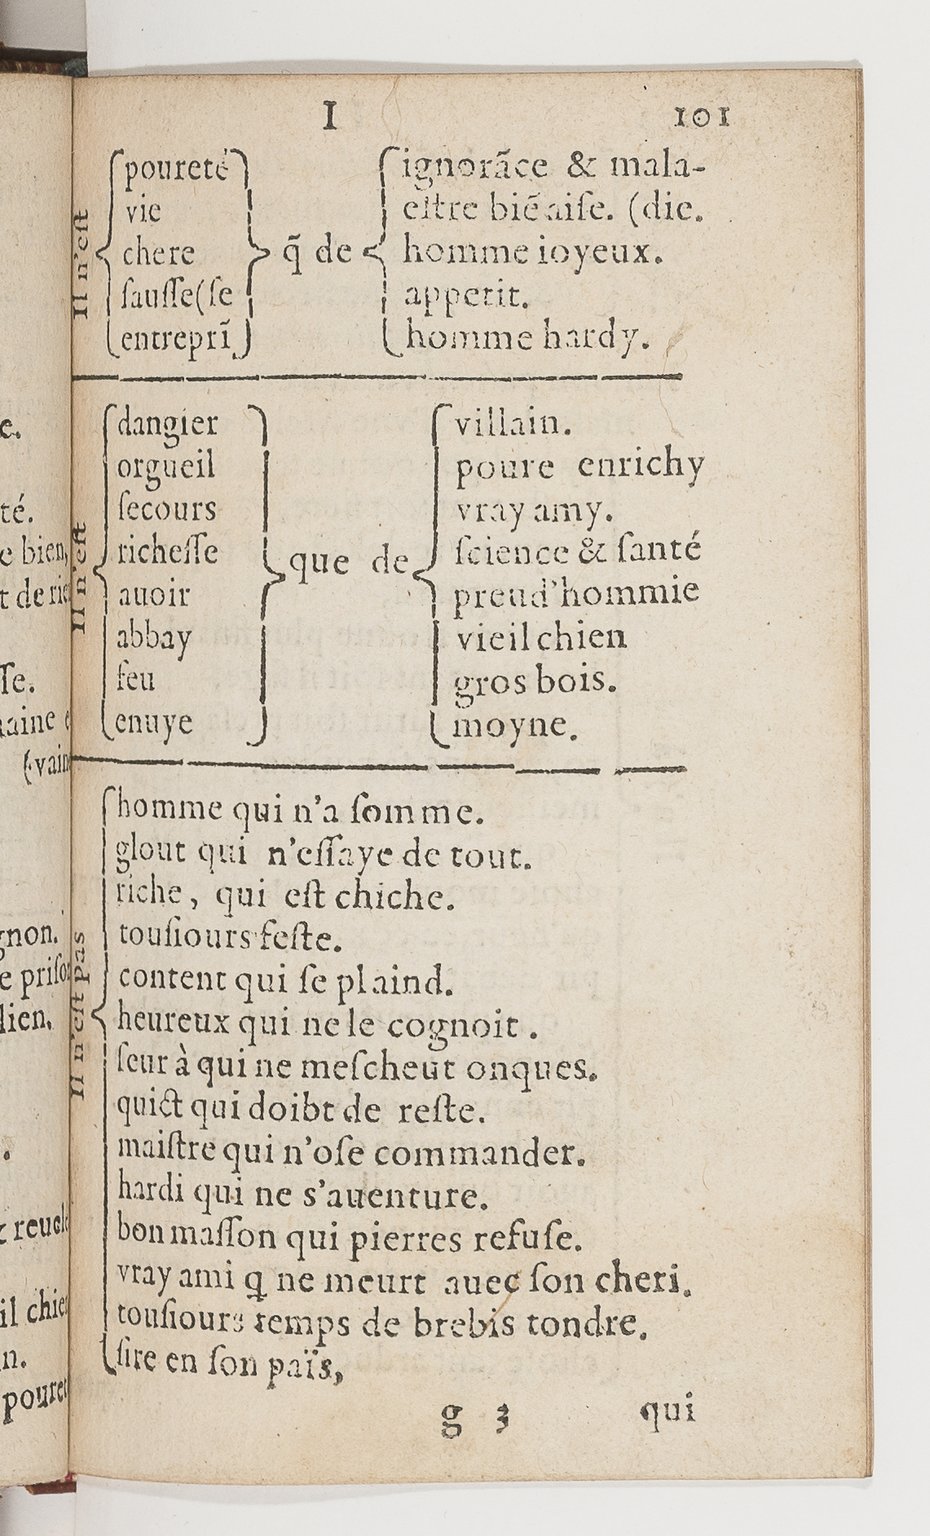 I 101
Il n'est
poureté
vie
chere
sauſſe(ſe
entreprĩ
q̃ de
ignorãce & mala-
eſtre biẽ aiſe. (die.
homme ioyeux.
appetit.
homme hardy.
Il n'eſt
dangier
orgueil
ſecours
richeſſe
auoir
abbay
feu
enuye
que de
villain.
poure enrichy
vray amy.
ſcience & ſanté
preud'hommie
vieil chien
gros bois.
moyne.
Il n'eſt pas
homme qui n'a ſomme.
glout qui n'eſſaye de tout.
riche, qui eſt chiche.
touſiours feſte.
content qui ſe plaind.
heureux qui ne le cognoit.
ſeur à qui ne meſcheut onques.
quict qui doibt de reſte.
maiſtre qui n'oſe commander.
hardi qui ne s'auenture.
bon maſſon qui pierres refuſe.
vray ami ꝗ ne meurt auec ſon cheri.
touſiours temps de brebis tondre.
ſire en ſon païs,
g 3 qui
e.
té.
e bien,
t de rie
ſſe.
(vain
gnon.
e priſo
lien.
il chie
n.
poure